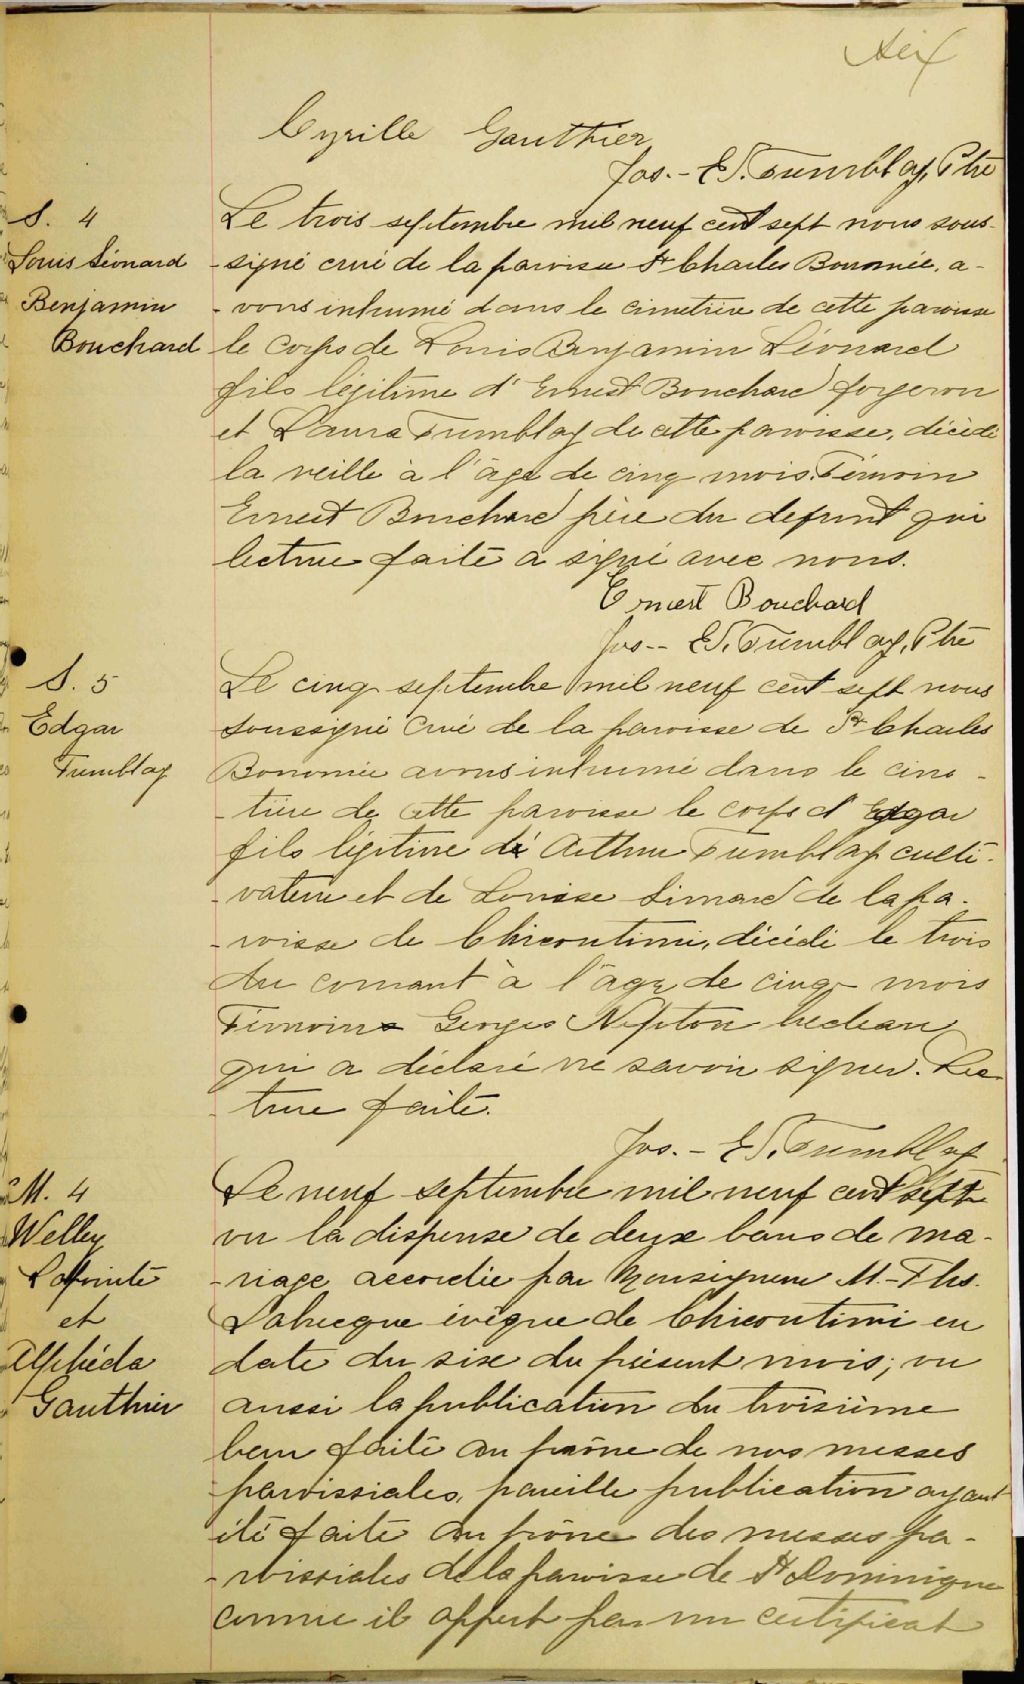 xix
Cyrille Gauthier
Jos.- Ed. Tremblay, Ptre
S. 4
Louis Léonard
Benjamin
Bouchard
Le trois septembre mil neuf cent sept nous sous-
-signé curé de la paroisse St Charles Borromée, a-
-vons inhumé dans le cimetière de cette paroisse
le corps de Louis Benjamin Léonard
fils légitime d'Ernest Bouchard forgeron
et Laura Tremblay de cette paroisse, décédé
la veille à l'âge de cinq mois. Témoin
Ernest Bouchard père du defunt qui
lecture faite a signé avec nous.
Ernest Bouchard
Jos-- Ed. Tremblay, Ptre
S. 5
Edgar
Tremblay
Le cinq septembre mil neuf cent sept nous
soussigné curé de la paroisse de St Charles
Borromée avons inhumé dans le cime-
-tière de cette paroisse le corps d'Edgar
fils légitime de Arthur Tremblay culti-
-vateur et de Louise Simard de la pa-
-roisse de Chicoutimi, décédé le trois
du courant à l'âge de cinq mois
Témoins Georges Nepton bedeau
qui a déclaré ne savoir signer. Lec-
ture faite.
Jos.- Ed. Tremblay
M. 4
Welley
Lapointe
et
Alphéda
Gauthier
Le neuf septembre mil neuf cent sept
vu la dispense de deux bans de ma-
-riage accordée par Monseigneur M.-Ths.
Labrecque évêque de Chicoutimi en
date du six du présent mois; vu
aussi la publication du troisième
ban faite au prône de nos messes
paroissiales, pareille publication ayant
été faite au prône des messes pa-
-roissiales de la paroisse de St Dominique
comme il appert par un certificat